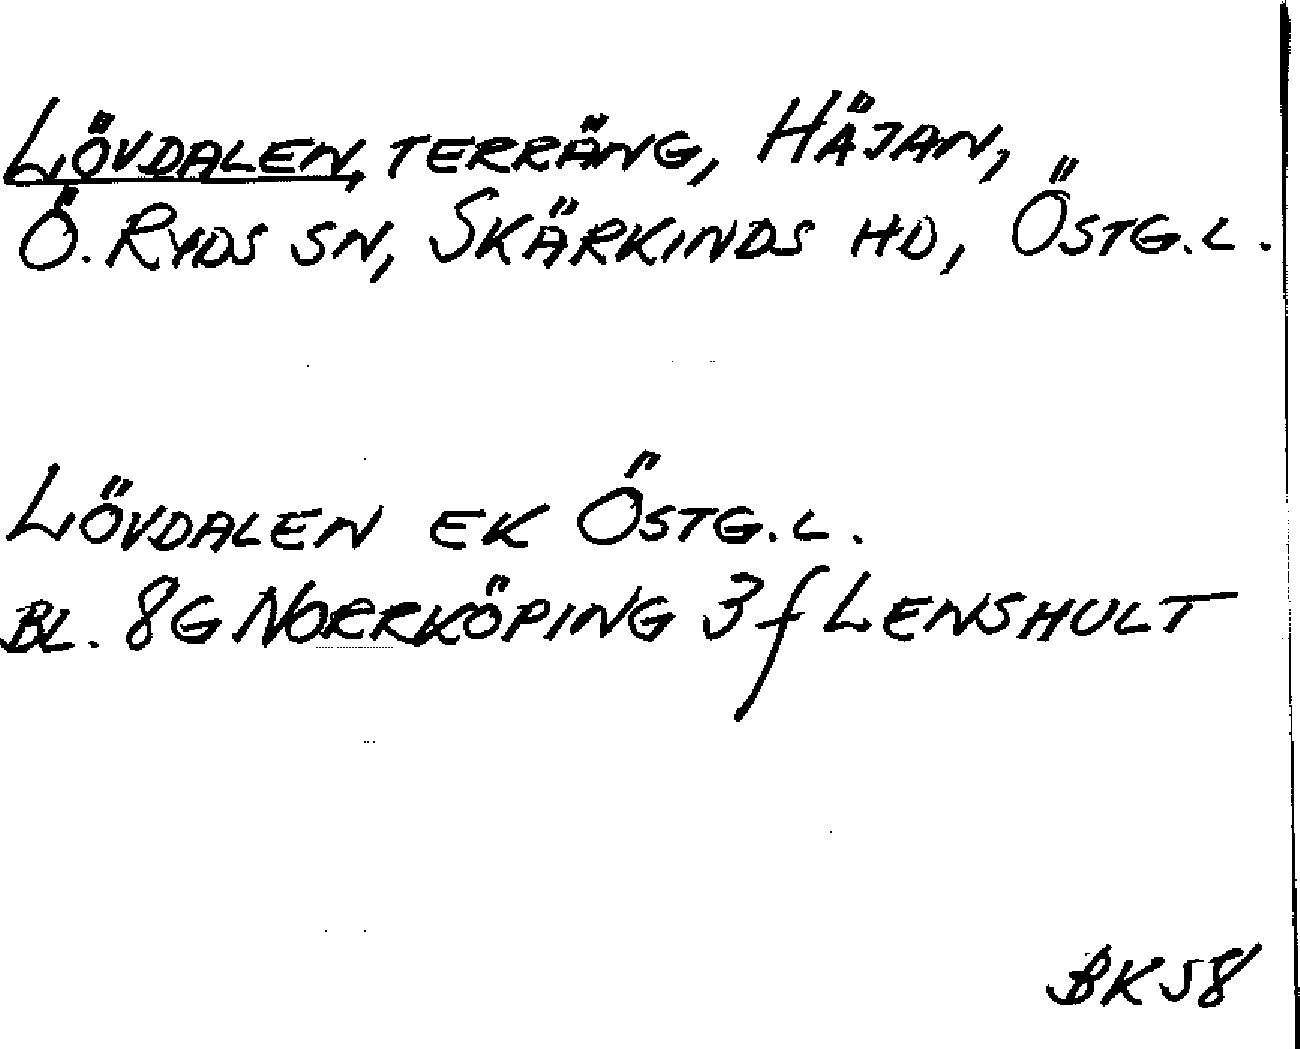 LÖVDALEN, TERRÄNG, HÄJAN,
Ö. RYDS SN, SKÄRKINDS HD, ÖSTG. L.
LÖVDALEN EK ÖSTG. L.
BL. 8G NORRKÖPING 3f LENSHULT
BK 58